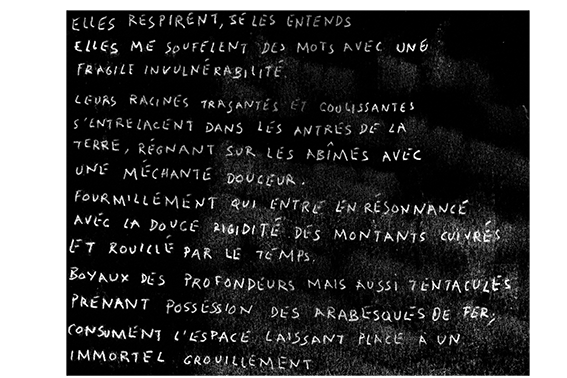 ELLES RESPIRENT, JE LES ENTENDS
ELLES ME SOUFFLENT DES MOTS AVEC UNE
FRAGILE INVULNÉRABILITÉ.
LEURS RACINES TRAÇANTES ET COULISSANTES
S'ENTRELACENT DANS LES ANTRES DE LA
TERRE, RÉGNANT SUR LES ABÎMES AVEC
UNE MÉCHANTE DOUCEUR.
FOURMILLEMENT QUI ENTRE EN RÉSONNANCE
AVEC LA DOUCE RIGIDITÉ DES MONTANTS CUIVRÉS
ET ROUILLÉ PAR LE TEMPS.
BOYAUX DES PROFONDEURS MAIS AUSSI TENTACULES
PRENANT POSSESSION DES ARABESQUES DE FER,
CONSUMENT L'ESPACE LAISSANT PLACE A UN
IMMORTEL GROUILLEMENT